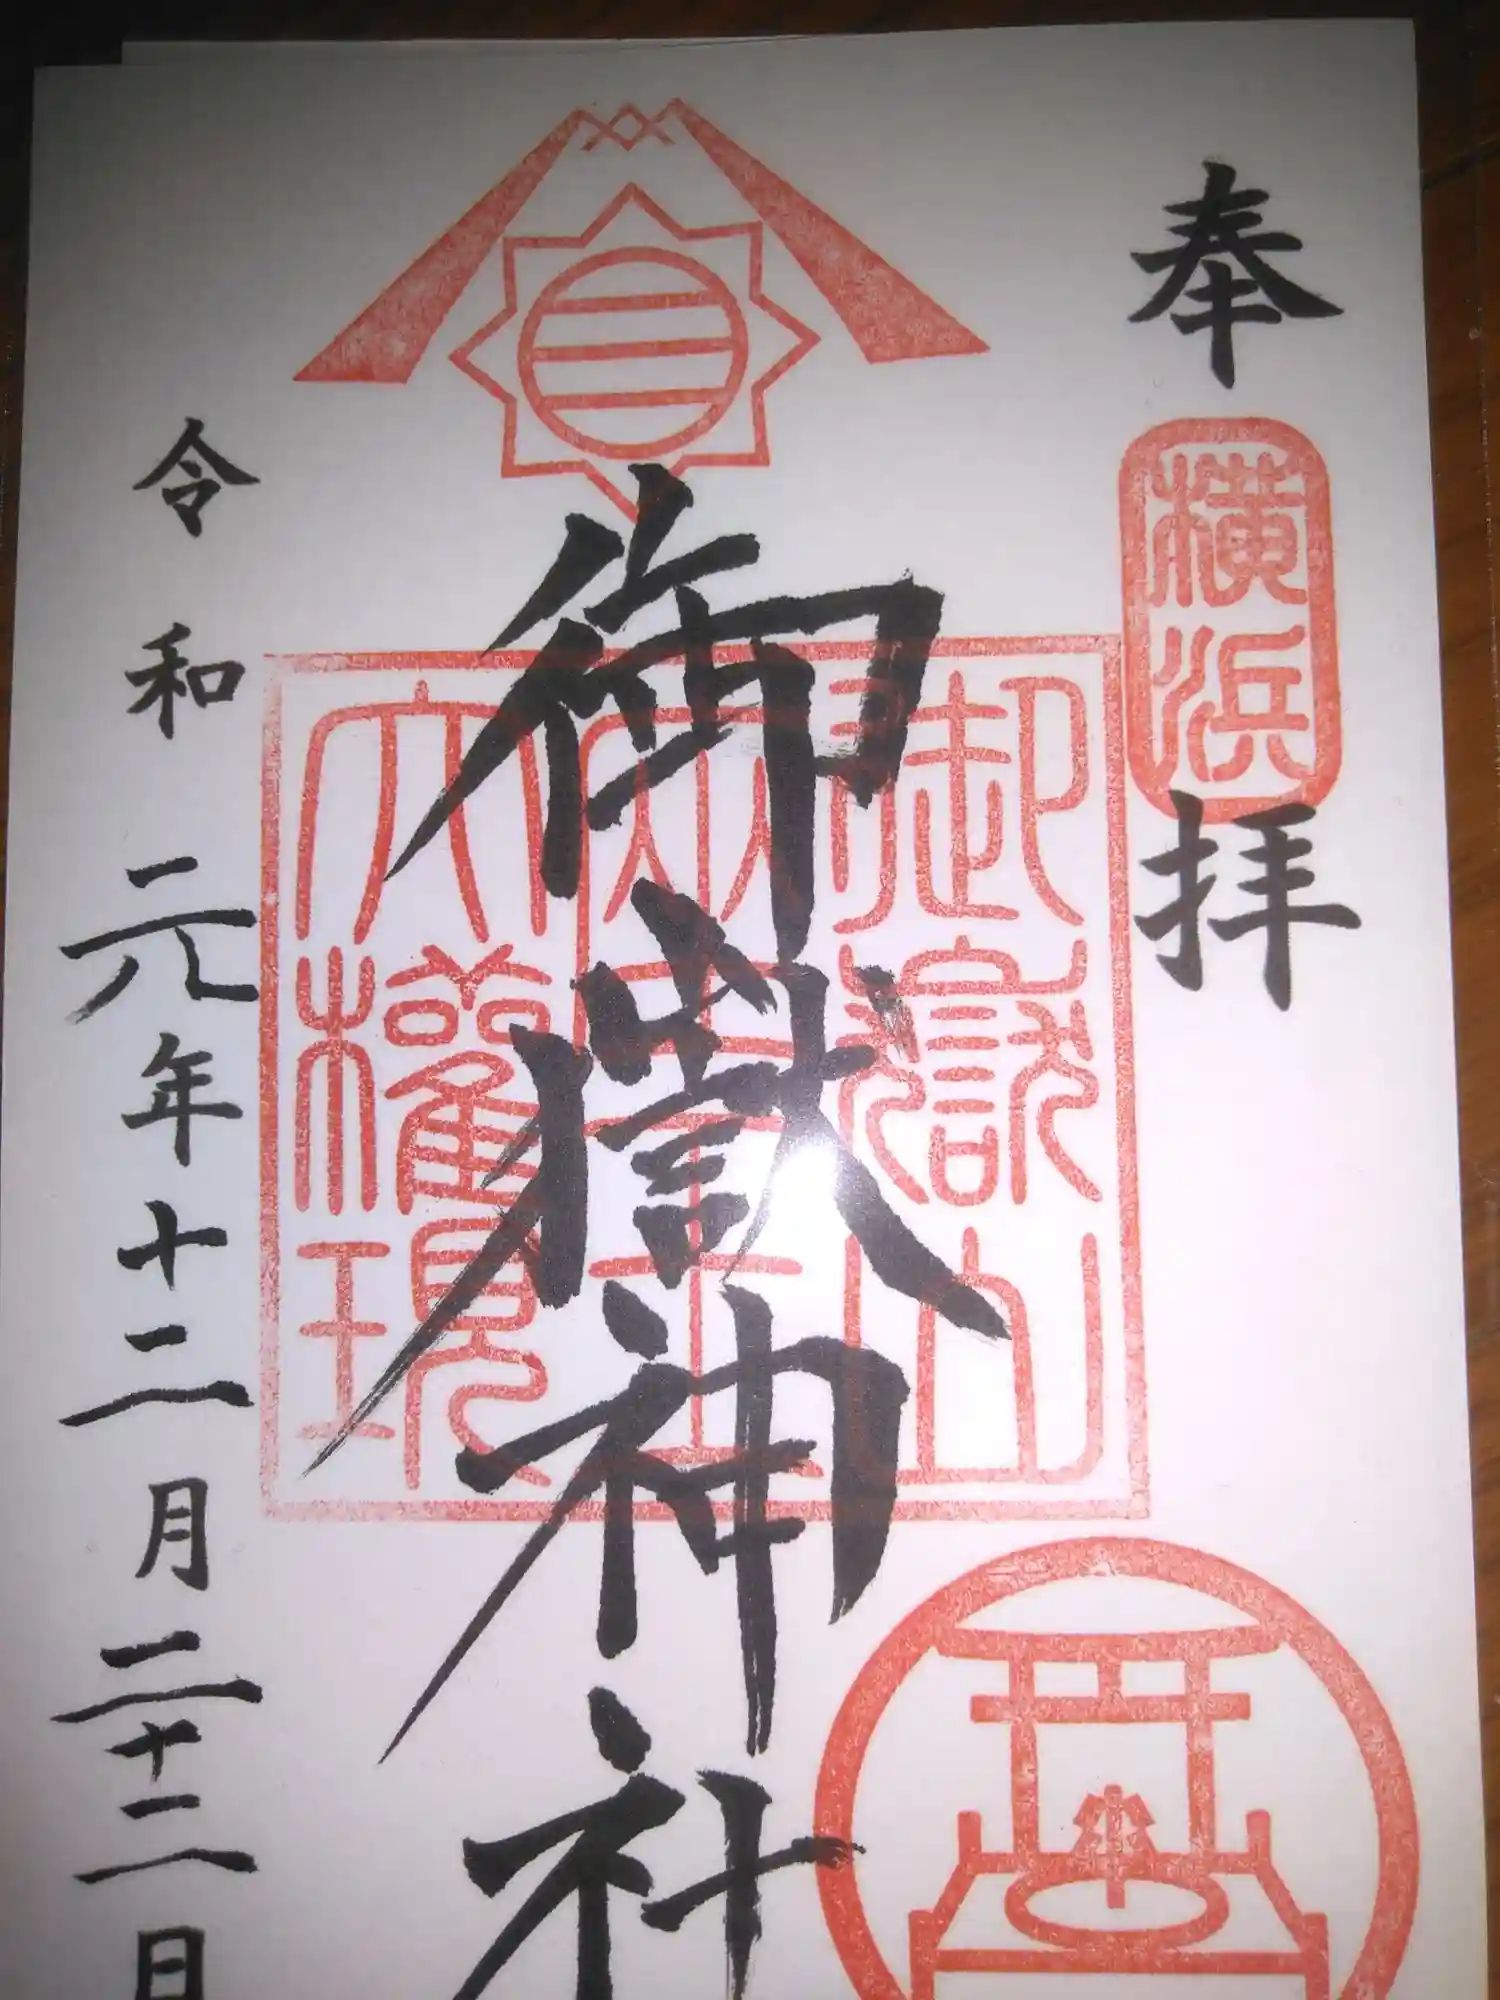 奉拝
横浜
御嶽神社
御嶽山
大権現
令和元年十二月二十二日